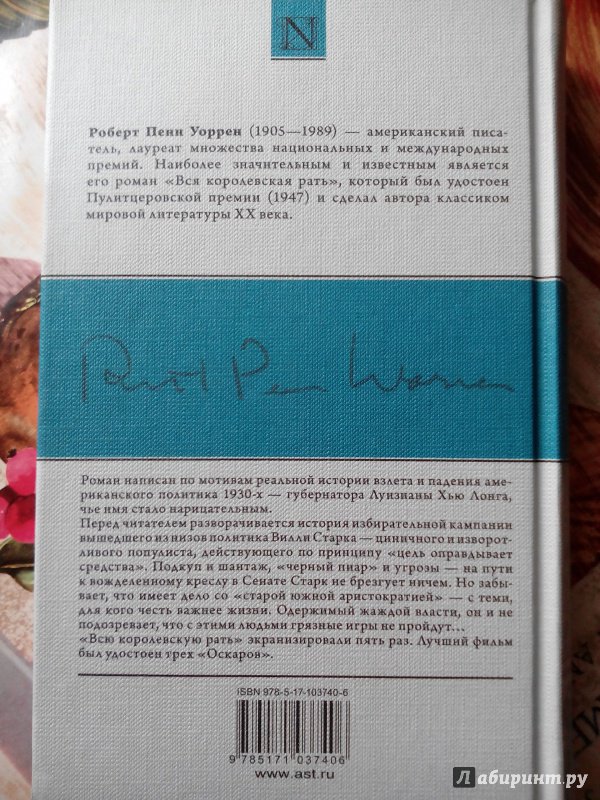 N
Роберт Пенн Уоррен (1905—1989) — американский писа-
тель, лауреат множества национальных и международных
премий. Наиболее значительным и известным является
его роман «Вся королевская рать», который был удостоен
Пулитцеровской премии (1947) и сделал автора классиком
мировой литературы XX века.
Роман написан по мотивам реальной истории взлета и падения аме-
риканского политика 1930-х — губернатора Луизианы Хью Лонга,
чье имя стало нарицательным.
Перед читателем разворачивается история избирательной кампании
вышедшего из низов политика Вилли Старка — циничного и изворот-
ливого популиста, действующего по принципу «цель оправдывает
средства». Подкуп и шантаж, «черный пиар» и угрозы — на пути
к вожделенному креслу в Сенате Старк не брезгует ничем. Но забы-
вает, что имеет дело со «старой южной аристократией» — с теми,
для кого честь важнее жизни. Одержимый жаждой власти, он и не
подозревает, что с этими людьми грязные игры не пройдут...
«Всю королевскую рать» экранизировали пять раз. Лучший фильм
был удостоен трех «Оскаров».
ISBN 978-5-17-103740-6
9 785171 037406
www.ast.ru
Лабиринт.ру